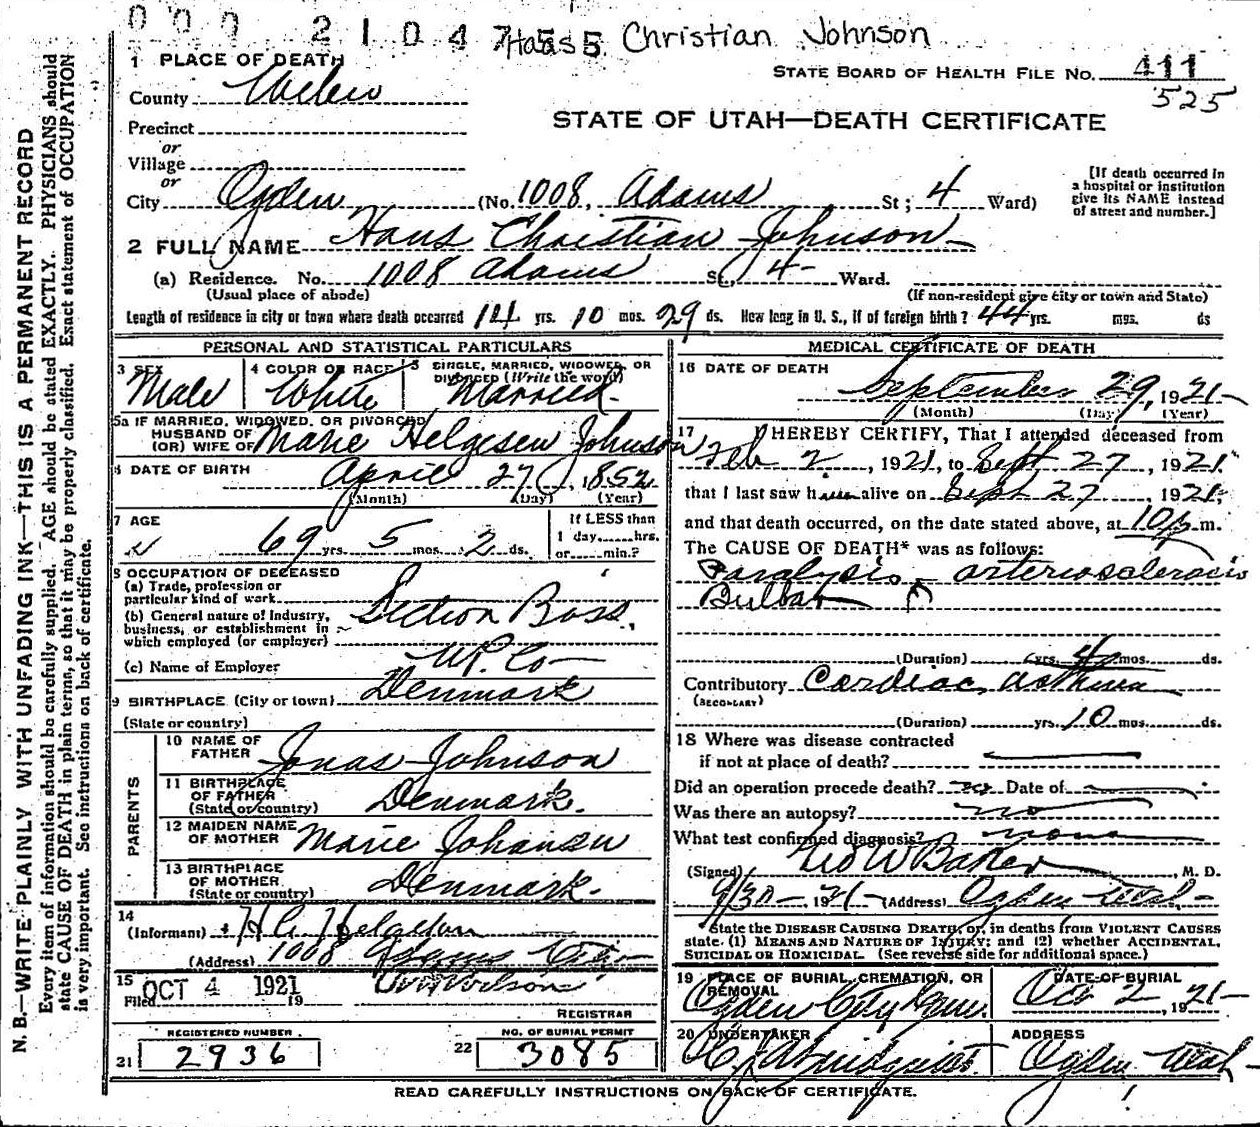 000 210475 5 Hans Christian Johnson
1 PLACE OF DEATH
STATE BOARD OF HEALTH FILE NO. 411
525
County Weber
STATE OF UTAH—DEATH CERTIFICATE
Precinct
or
Village
or
City Ogden (No. 1008, Adams St; 4 Ward)
[If death occurred in
a hospital or institution
give its NAME instead
of street and number.]
2 FULL NAME Hans Christian Johnson
(a) Residence. No. 1008 Adams St., 4 Ward.
(Usual place of abode) (If non-resident give city or town and State)
Length of residence in city or town where death occurred 14 yrs. 10 mos. 29 ds. How long in U. S., if of foreign birth? 44 yrs. mos. ds
PERSONAL AND STATISTICAL PARTICULARS
3 SEX
Male
4 COLOR OR RACE
White
5 SINGLE, MARRIED, WIDOWED, OR
DIVORCED (Write the word)
Married
5a IF MARRIED, WIDOWED, OR DIVORCED
HUSBAND OF
(OR) WIFE OF Marie Helgesen Johnson
6 DATE OF BIRTH April 27, 1852
(Month) (Day) (Year)
7 AGE
69 yrs. 5 mos. 2 ds.
If LESS than
1 day hrs.
or min.?
8 OCCUPATION OF DECEASED
(a) Trade, profession or
particular kind of work
Section Boss.
(b) General nature of Industry,
business, or establishment in
which employed (or employer)
(c) Name of Employer U.P. Co
9 BIRTHPLACE (City or town) Denmark
(State or country)
PARENTS
10 NAME OF
FATHER Jonas Johnson
11 BIRTHPLACE
OF FATHER
(State or country) Denmark.
12 MAIDEN NAME
OF MOTHER Marie Johansen
13 BIRTHPLACE
OF MOTHER
(State or country) Denmark.
14
(Informant)
(Address) 1008 Adams City
15
Filed OCT 4 1921 19
W Wilson
REGISTRAR
REGISTERED NUMBER
21 2936
NO. OF BURIAL PERMIT
22 3085
MEDICAL CERTIFICATE OF DEATH
16 DATE OF DEATH
September 29, 1921
(Month) (Day) (Year)
17 I HEREBY CERTIFY, That I attended deceased from
Feb 2, 1921, to Sept 27, 1921.
that I last saw him alive on Sept 27, 1921,
and that death occurred, on the date stated above, at 10 p. m.
The CAUSE OF DEATH* was as follows:
Paralysis arteriosclerosis
Bulbar
(Duration) yrs. 4 mos. ds.
Contributory Cardiac asthma
(SECONDARY)
(Duration) yrs. 10 mos. ds.
18 Where was disease contracted
if not at place of death?
Did an operation precede death? no Date of
Was there an autopsy? no
What test confirmed diagnosis? none
(Signed) Geo W Baker, M. D.
9/30, 1921 (Address) Ogden Utah
State the DISEASE CAUSING DEATH, or, in deaths from VIOLENT CAUSES
state. (1) MEANS AND NATURE OF INJURY; and (2) whether ACCIDENTAL,
SUICIDAL OR HOMICIDAL. (See reverse side for additional space.)
19 PLACE OF BURIAL, CREMATION, OR
REMOVAL
Ogden City Cem.
DATE OF BURIAL
Oct 2, 1921
20 UNDERTAKER
Lindquist
ADDRESS
Ogden Utah
READ CAREFULLY INSTRUCTIONS ON BACK OF CERTIFICATE.
N. B.—WRITE PLAINLY WITH UNFADING INK—THIS IS A PERMANENT RECORD
Every item of information should be carefully supplied. AGE should be stated EXACTLY. PHYSICIANS should
state CAUSE OF DEATH in plain terms, so that it may be properly classified. Exact statement of OCCUPATION
is very important. See instructions on back of certificate.